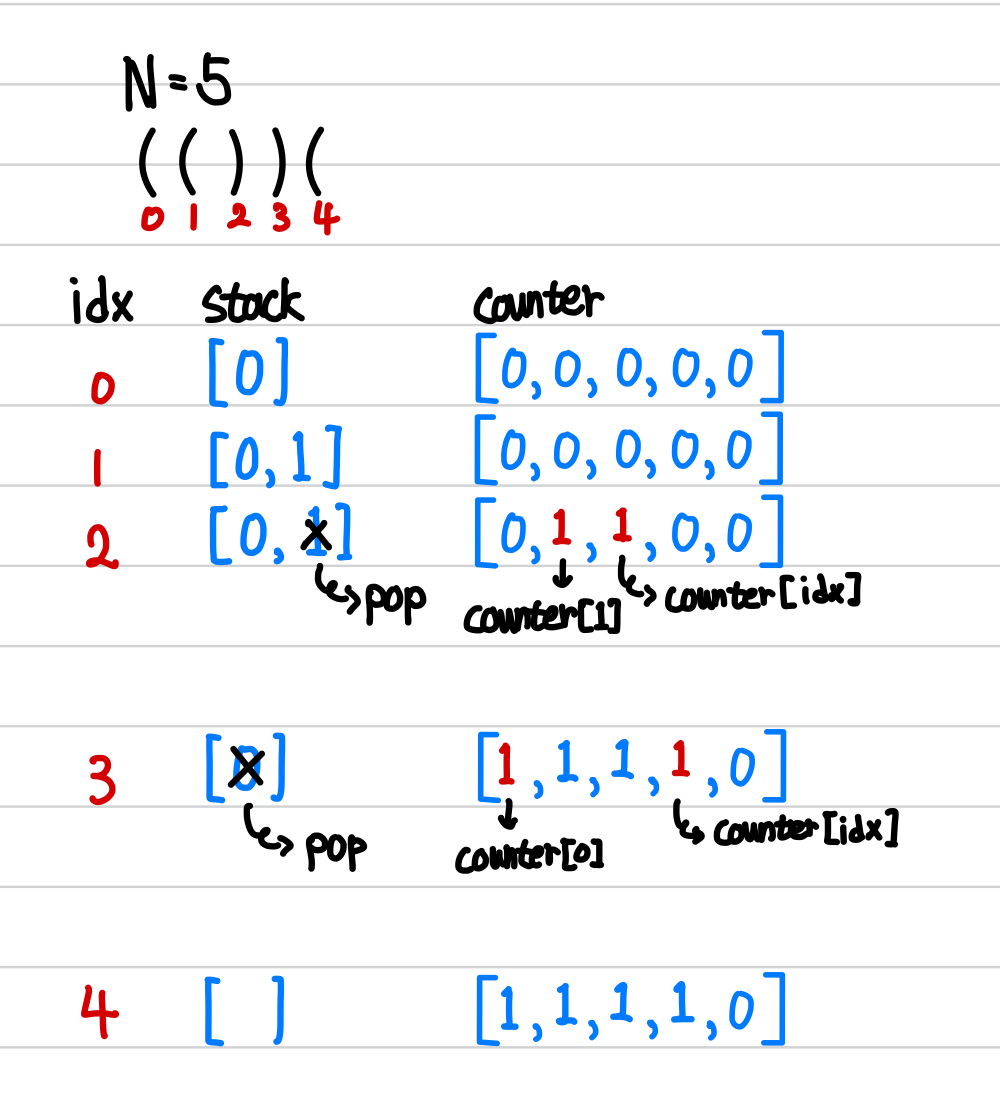 N=5
(())(
0 1 2 3 4
idx stack counter
0 [0] [0,0,0,0,0]
1 [0,1] [0,0,0,0,0]
2 [0,1] [0,1,1,0,0]
pop counter[1] counter[idx]
3 [0] [1,1,1,1,0]
pop counter[0] counter[idx]
4 [ ] [1,1,1,1,0]